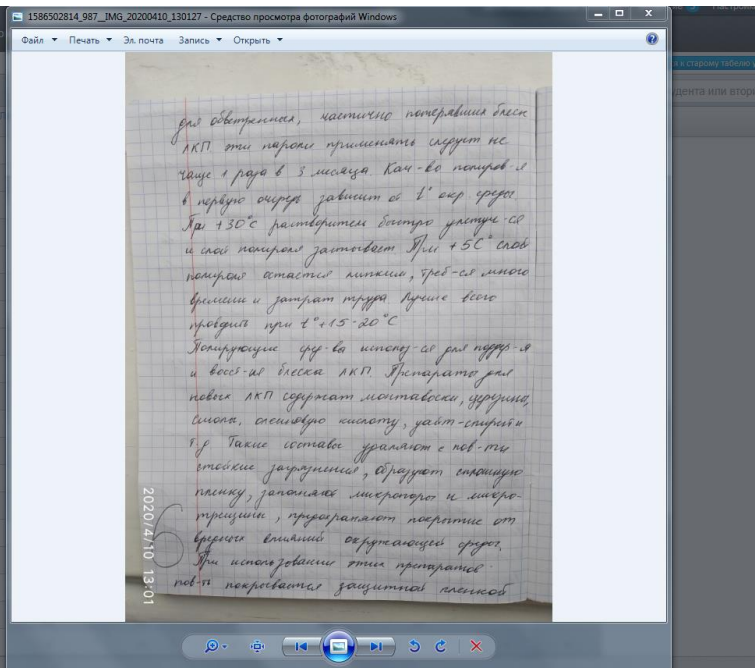 1586502814_987__IMG_20200410_130127 - Средство просмотра фотографий Windows
Файл Печать Эл. почта Запись Открыть
ся к старому табелю
удента или втори
для обветренных, частично потерявших блеск
ЛКП эти пароли применять следует не
чаще 1 раза в 3 месяца. Кач-во полиров-я
в первую очередь зависит от t° окр. среды
При +30°С растворитель быстро улетуч-ся
и слой полироля застывает. При +5С° слой
полироля остаётся липким, треб-ся много
времени и затрат труда. Лучше всего
проводить при t°+15-20°С
Полирующие сред-ва использ-ся для поддер-я
и восст-ия блеска ЛКП. Препараты для
новых ЛКП содержат монтавоски, церезины,
смолы, олеиновую кислоту, уайт-спирит и
т.д Такие составы удаляют с пов-ти
стойкие загрязнения, образуют сплошную
пленку, заполняют микропоры и микро-
трещины, предохраняют покрытие от
вредных влияний окружающей среды.
При использовании этих препаратов
пов-ть покрывается защитной пленкой
6
2020/4/10 13:01